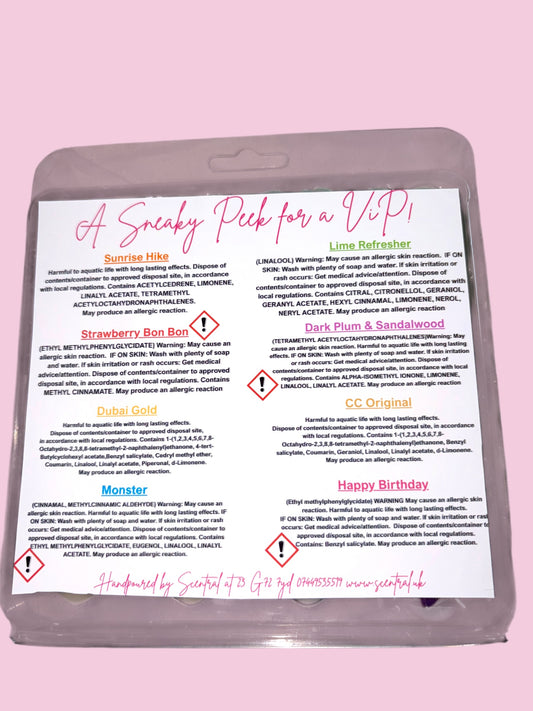 A Sneaky Peek for a ViP!
Sunrise Hike
Harmful to aquatic life with long lasting effects. Dispose of
contents/container to approved disposal site, in accordance
with local regulations. Contains ACETYLCEDRENE, LIMONENE,
LINALYL ACETATE, TETRAMETHYL
ACETYLOCTAHYDRONAPHTHALENES.
May produce an allergic reaction.
Strawberry Bon Bon
(ETHYL METHYLPHENYLGLYCIDATE) Warning: May cause an
allergic skin reaction. IF ON SKIN: Wash with plenty of soap
and water. If skin irritation or rash occurs: Get medical
advice/attention. Dispose of contents/container to approved
disposal site, in accordance with local regulations. Contains
METHYL CINNAMATE. May produce an allergic reaction.
Dubai Gold
Harmful to aquatic life with long lasting effects.
Dispose of contents/container to approved disposal site,
in accordance with local regulations. Contains 1-(1,2,3,4,5,6,7,8-
Octahydro-2,3,8,8-tetramethyl-2-naphthalenyl)ethanone, 4-tert-
Butylcyclohexyl acetate,Benzyl salicylate, Cedryl methyl ether,
Coumarin, Linalool, Linalyl acetate, Piperonal, d-Limonene.
May produce an allergic reaction.
Monster
(CINNAMAL, METHYLCINNAMIC ALDEHYDE) Warning: May cause an
allergic skin reaction. Harmful to aquatic life with long lasting effects. IF
ON SKIN: Wash with plenty of soap and water. If skin irritation or rash
occurs: Get medical advice/attention. Dispose of contents/container to
approved disposal site, in accordance with local regulations. Contains
ETHYL METHYLPHENYLGLYCIDATE, EUGENOL, LINALOOL, LINALYL
ACETATE. May produce an allergic reaction.
Lime Refresher
(LINALOOL) Warning: May cause an allergic skin reaction. IF ON
SKIN: Wash with plenty of soap and water. If skin irritation or
rash occurs: Get medical advice/attention. Dispose of
contents/container to approved disposal site, in accordance with
local regulations. Contains CITRAL, CITRONELLOL, GERANIOL,
GERANYL ACETATE, HEXYL CINNAMAL, LIMONENE, NEROL,
NERYL ACETATE. May produce an allergic reaction.
Dark Plum & Sandalwood
(TETRAMETHYL ACETYLOCTAHYDRONAPHTHALENES)Warning: May
cause an allergic skin reaction. Harmful to aquatic life with long lasting
effects. IF ON SKIN: Wash with plenty of soap and water. If skin irritation
or rash occurs: Get medical advice/attention. Dispose of
contents/container to approved disposal site, in accordance with local
regulations. Contains ALPHA-ISOMETHYL IONONE, LIMONENE,
LINALOOL, LINALYL ACETATE. May produce an allergic reaction
CC Original
Harmful to aquatic life with long lasting effects.
Dispose of contents/container to approved disposal site, in accordance
with local regulations. Contains 1-(1,2,3,4,5,6,7,8-
Octahydro-2,3,8,8-tetramethyl-2-naphthalenyl)ethanone, Benzyl
salicylate, Coumarin, Geraniol, Linalool, Linalyl acetate, d-Limonene.
May produce an allergic reaction.
Happy Birthday
(Ethyl methylphenylglycidate) WARNING May cause an allergic skin
reaction. Harmful to aquatic life with long lasting effects.
IF ON SKIN: Wash with plenty of soap and water. If skin irritation or rash
occurs: Get medical advice/attention. Dispose of contents/container to
approved disposal site, in accordance with local regulations.
Contains: Benzyl salicylate. May produce an allergic reaction.
Handpoured by Scentral at 23 G72 7yd 07449535519 www.scentral.uk